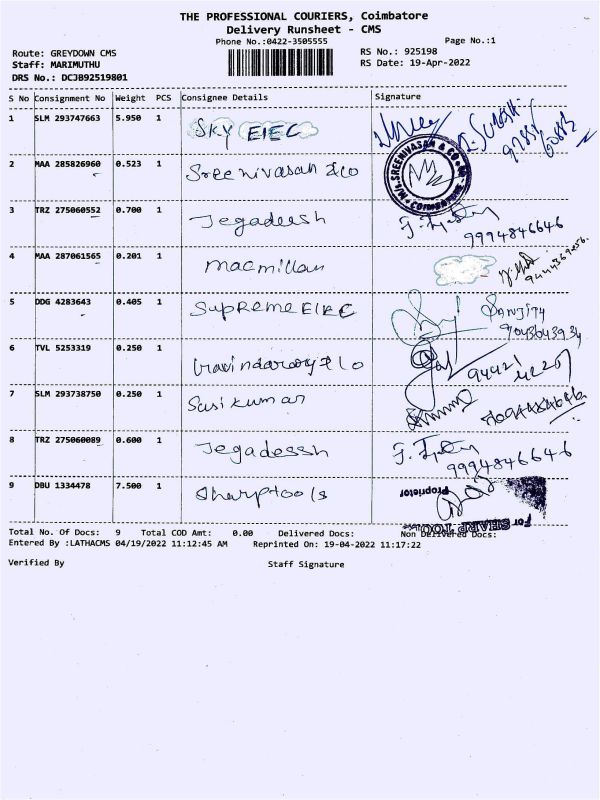 THE PROFESSIONAL COURIERS, Coimbatore
Delivery Runsheet - CMS
Phone No.:0422-3505555
Page No.:1
Route: GREYDOWN CMS
RS No.: 925198
Staff: MARIMUTHU
RS Date: 19-Apr-2022
DRS No.: DCJB92519801
S No Consignment No Weight PCS Consignee Details Signature
1 SLM 293747663 5.950 1 SKY ElEC
2 MAA 285826960 0.523 1 Sreenivasan &co
M/s. SREENIVASAN & CO. COIMBATORE
3 TRZ 275060552 0.700 1 Jegadeesh
9994846646
4 MAA 287061565 0.201 1 macmillan
5 DDG 4283643 0.405 1 SupremeElEC
6 TVL 5253319 0.250 1
94421
7 SLM 293738750 0.250 1 Sasikumar
8 TRZ 275060089 0.600 1 Jegadessh
9994846646
9 DBU 1334478 7.500 1 Sharptools
Proprietor
For SHARP TOOLS
Total No. Of Docs: 9 Total COD Amt: 0.00 Delivered Docs: Non Delivered Docs:
Entered By :LATHACMS 04/19/2022 11:12:45 AM Reprinted On: 19-04-2022 11:17:22
Verified By Staff Signature